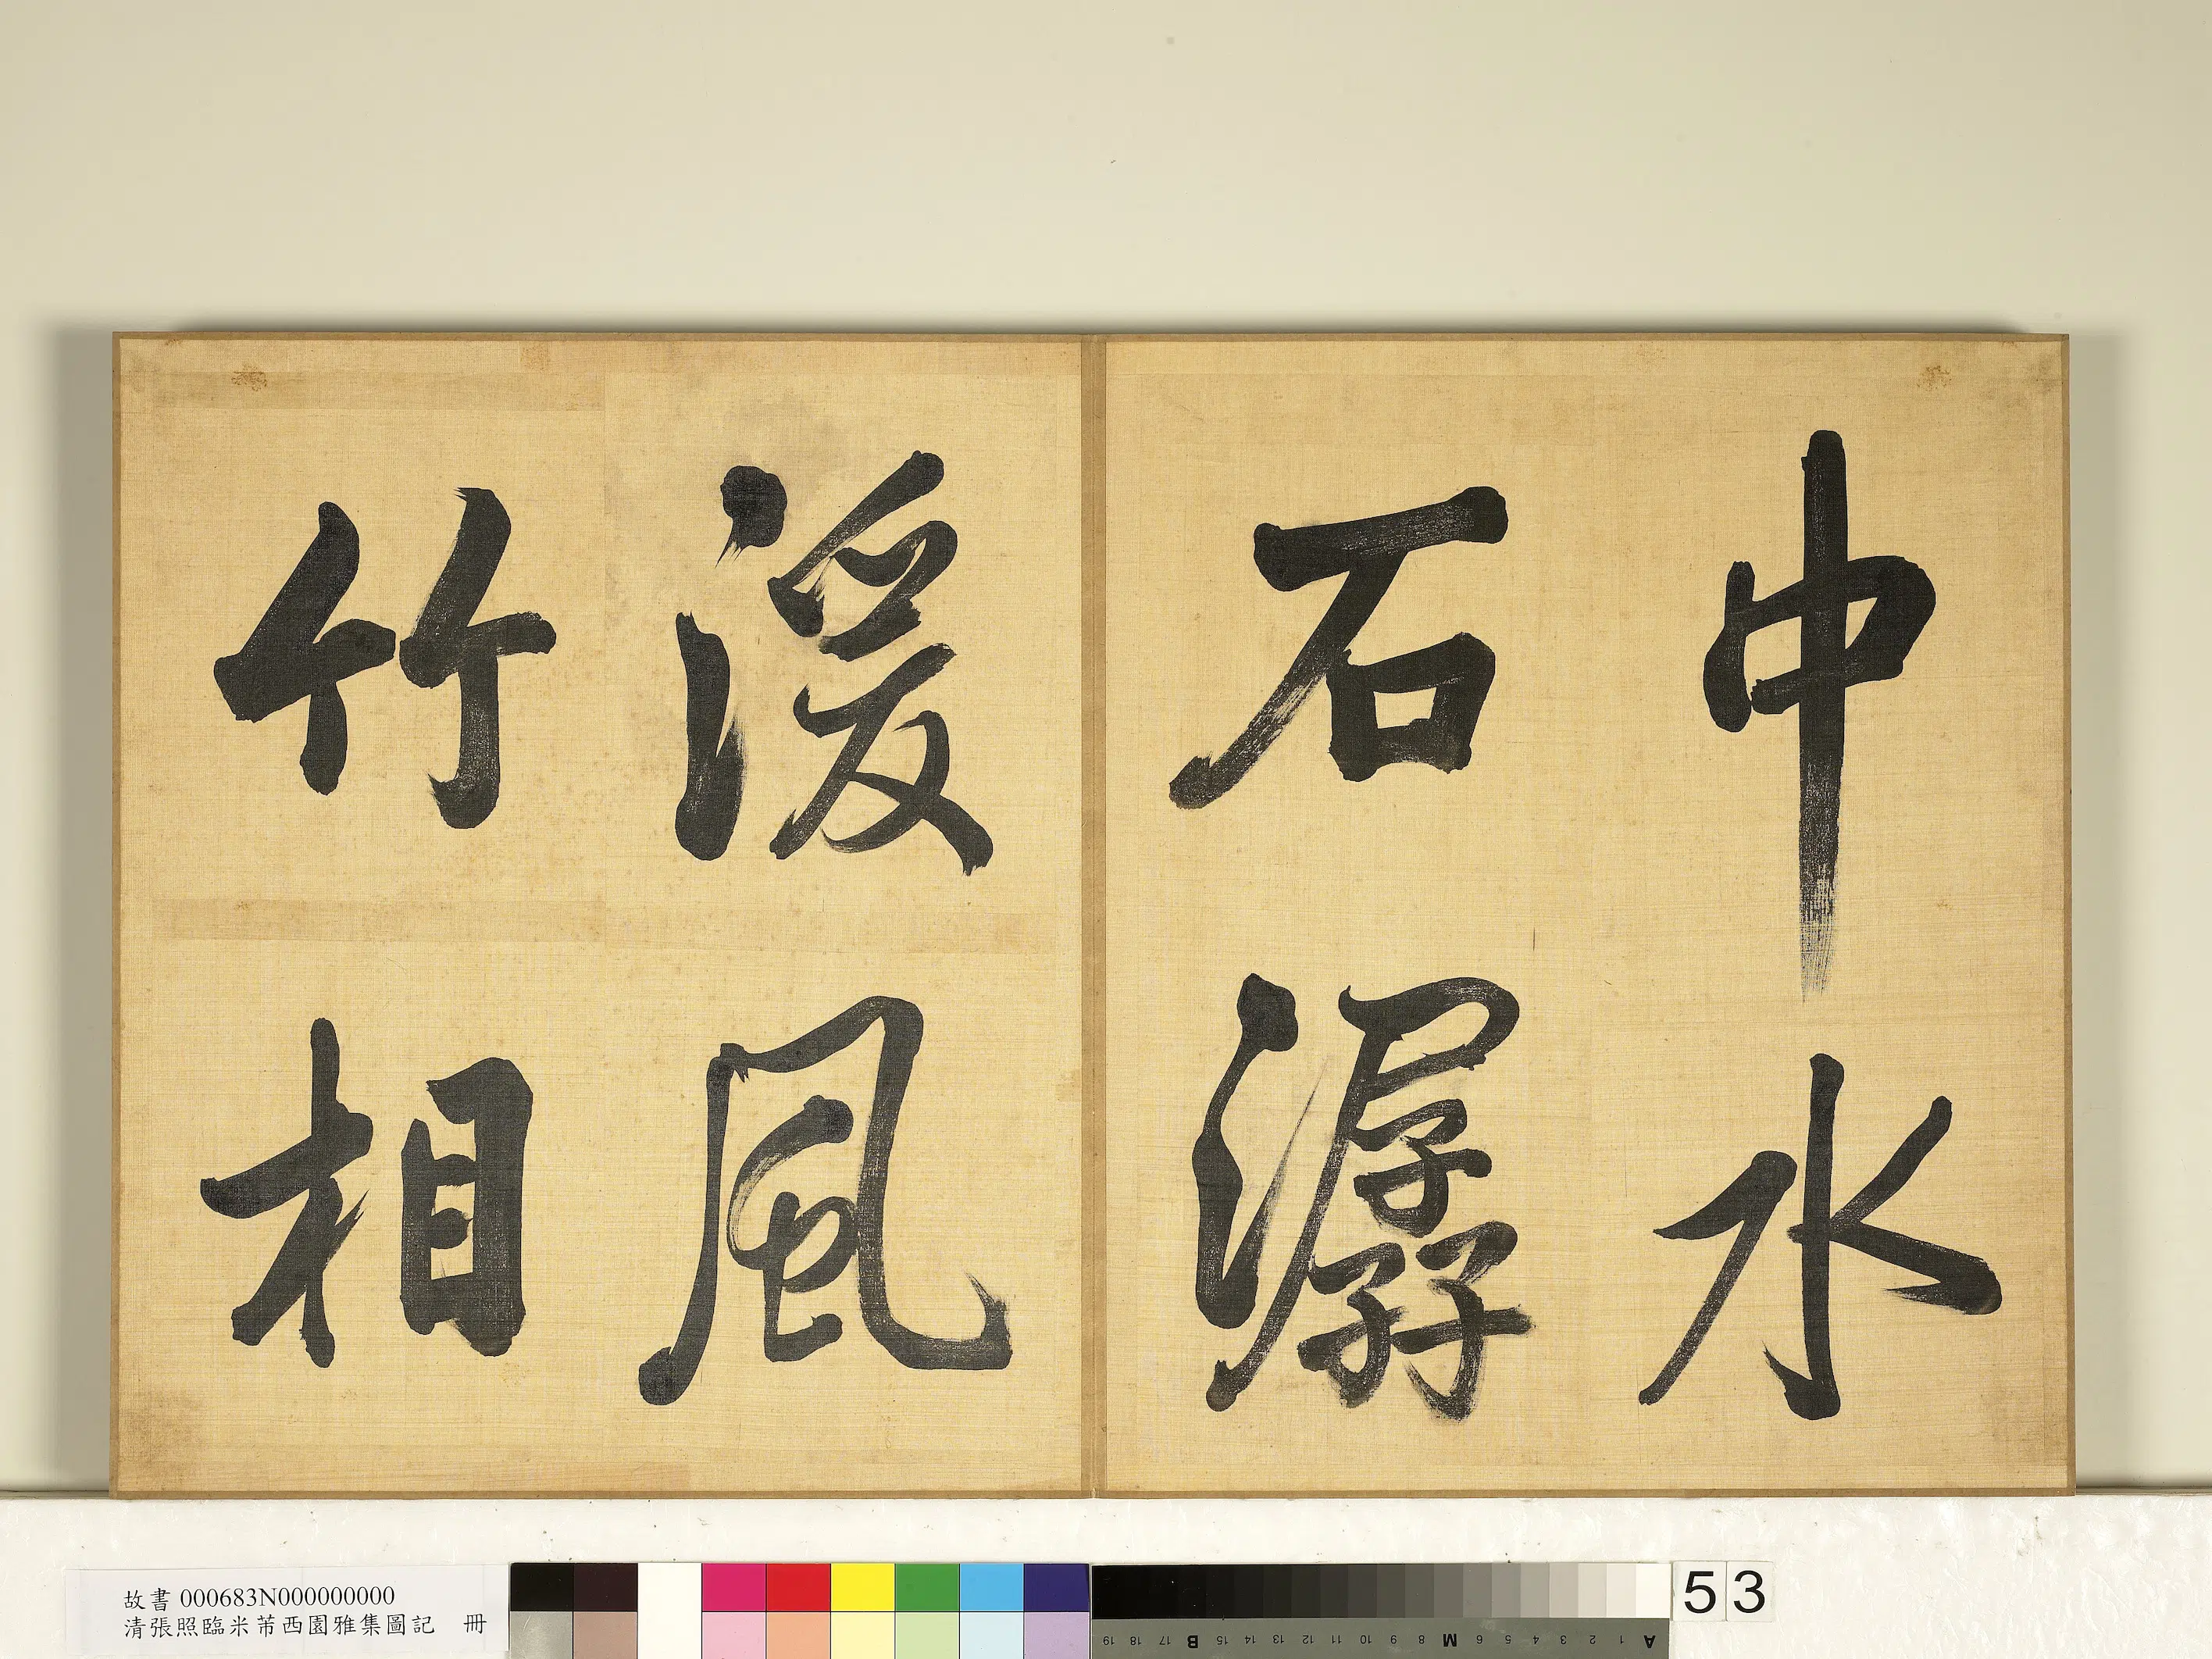 中水
石潺
湲風
竹相
故書 000683N000000000
清張照臨米芾西園雅集圖記 冊
A 1 2 3 4 5 6 M 8 9 10 11 12 13 14 15 B 17 18 19
53